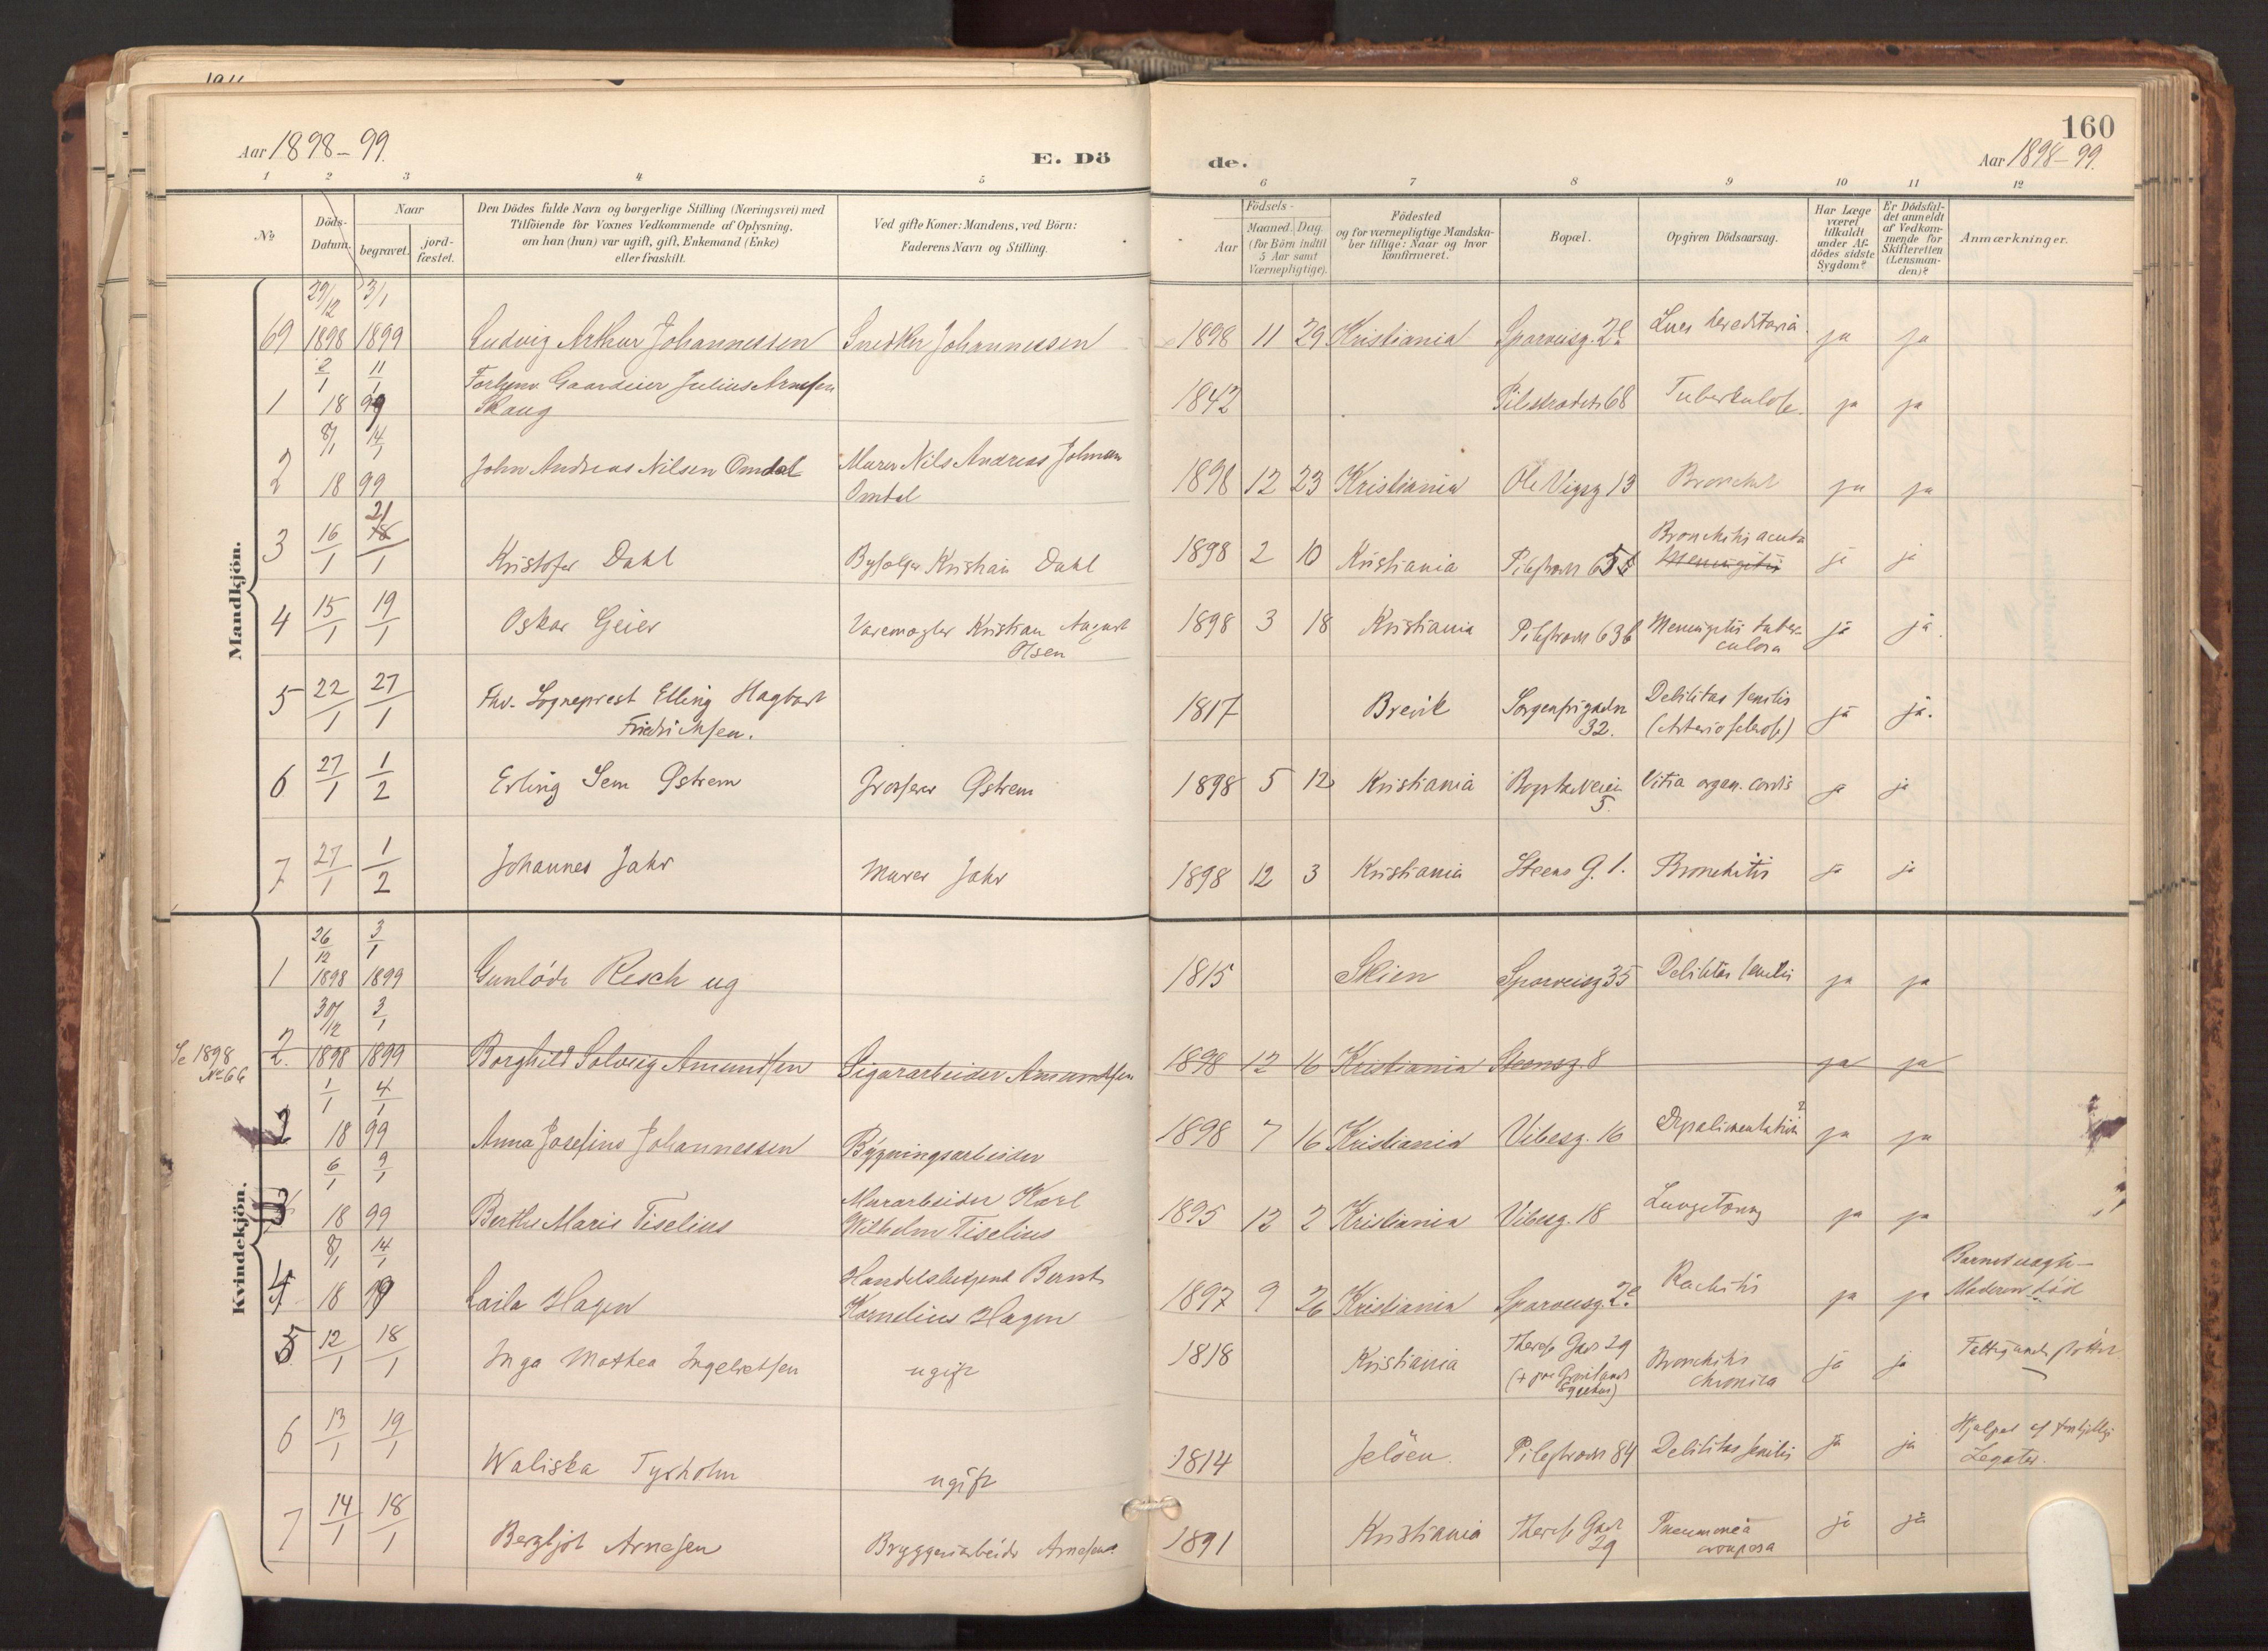 Aar 1898-99.
E. Dö
de.
160
Aar 1898-99.
1 2 3 4 5 6 7 8 9 10 11 12
No
Döds-Datum.
Naar
begravet.
jord-fæstet.
Den Dödes fulde Navn og borgerlige Stilling (Næringsvei) med
Tilföiende for Voxnes Vedkommende af Oplysning,
om han (hun) var ugift, gift, Enkemand (Enke)
eller fraskilt.
Ved gifte Koner: Mandens, ved Börn:
Faderens Navn og Stilling.
Födsels-
Aar
Maaned. Dag.
(for Börn indtil
5 Aar samt
Værnepligtige).
Födested
og for værnepligtige Mandska-
ber tillige: Naar og hvor
konfirmeret.
Bopæl.
Opgiven Dödsaarsag.
Har Læge
været
tilkaldt
under Af-
dödes sidste
Sygdom?
Er Dödsfal-
det anmeldt
af Vedkom-
mende for
Skifteretten
(Lensman-
den)?
Anmærkninger.
Mandkjön.
69 29/12 1898 3/1 1899 Ludvig Arthur Johannessen Snedker Johannessen 1898 11 29 Kristiania Sporveisg. 2e Lues hereditaria ja ja
1 2/1 11/1 1899 Forhenv. Gaardeier Julius Arnesen
Skaug 1842 Pilestrædet 68 Tuberkulose. ja ja
2 8/1 14/1 1899 John Andreas Nilsen Omdal Murer Nils Andreas Johnsen
Omdal 1898 12 23 Kristiania Ole Vigsg 13 Bronchit ja ja
3 16/1 21/1 Kristofer Dahl Bysælger Kristian Dahl 1898 2 10 Kristiania Pilestræd Bronchitis acuta
Meningitis ja ja
4 15/1 19/1 Oskar Geier Varemægler Kristian August
Olsen 1898 3 18 Kristiania Pilestræd 63b Meningitis tuber-
culosa ja ja.
5 22/1 27/1 Fhv. Sogneprest Elling Hagbart
Friedrichsen. 1817 Brevik Sorgenfrigaden
32. Debilitas senilis
(Arteriosclerose) ja ja.
6 27/1 1/2 Erling Sem Østrem Grosserer Østrem 1898 5 12 Kristiania Bogstadveien
5. Vitia organ. cordis ja ja
7 27/1 1/2 Johannes Jahr Murer Jahr 1898 12 3 Kristiania Steens G. 1. Bronchitis ja ja
Kvindekjön.
1 26/12 1898 3/1 1899 Gunlöde Resch ug 1815 Skien Sporveisg 35 Debilitas senilis ja ja
Se 1898
No 66
2. 30/12 1898 3/1 1899 Borghild Solveig Amundsen Sigararbeider Amundsen 1898 12 16 Kristiania Steensg. 8 ja ja
2 1/1 4/1 1899 Anna Josefine Johannessen Bygningsarbeider 1898 7 16 Kristiania Vibesg. 16 ja ja
3 6/1 9/1 1899 Berthe Marie Tiselius Murarbeider Karl
Wilhelm Tiselius 1895 12 2 Kristiania Vibesg. 18 ja ja
4 8/1 14/1 1899 Laila Hagen Handelsbetjent Bernt
Kornelius Hagen 1897 9 26 Kristiania Sporveisg. 2e Rachitis ja ja
Moderen död
5 12/1 18/1 Inga Mathea Ingebretsen ugift 1818 Kristiania Therese Gade 29
(+ paa Grönlands
Sygehus) Bronchitis
chronica ja ja Fattigunderstøttet
6 13/1 19/1 Waliska Tyrholm ugift 1814 Jelöen. Pilestræd 84 Debilitas senilis ja ja Hjulpet af forskjellige
Legater.
7 14/1 18/1 Bergljot Arnesen Bryggeriarbeider Arnesen. 1891 Kristiania Therese Gade
29 Pneumonia
crouposa ja ja